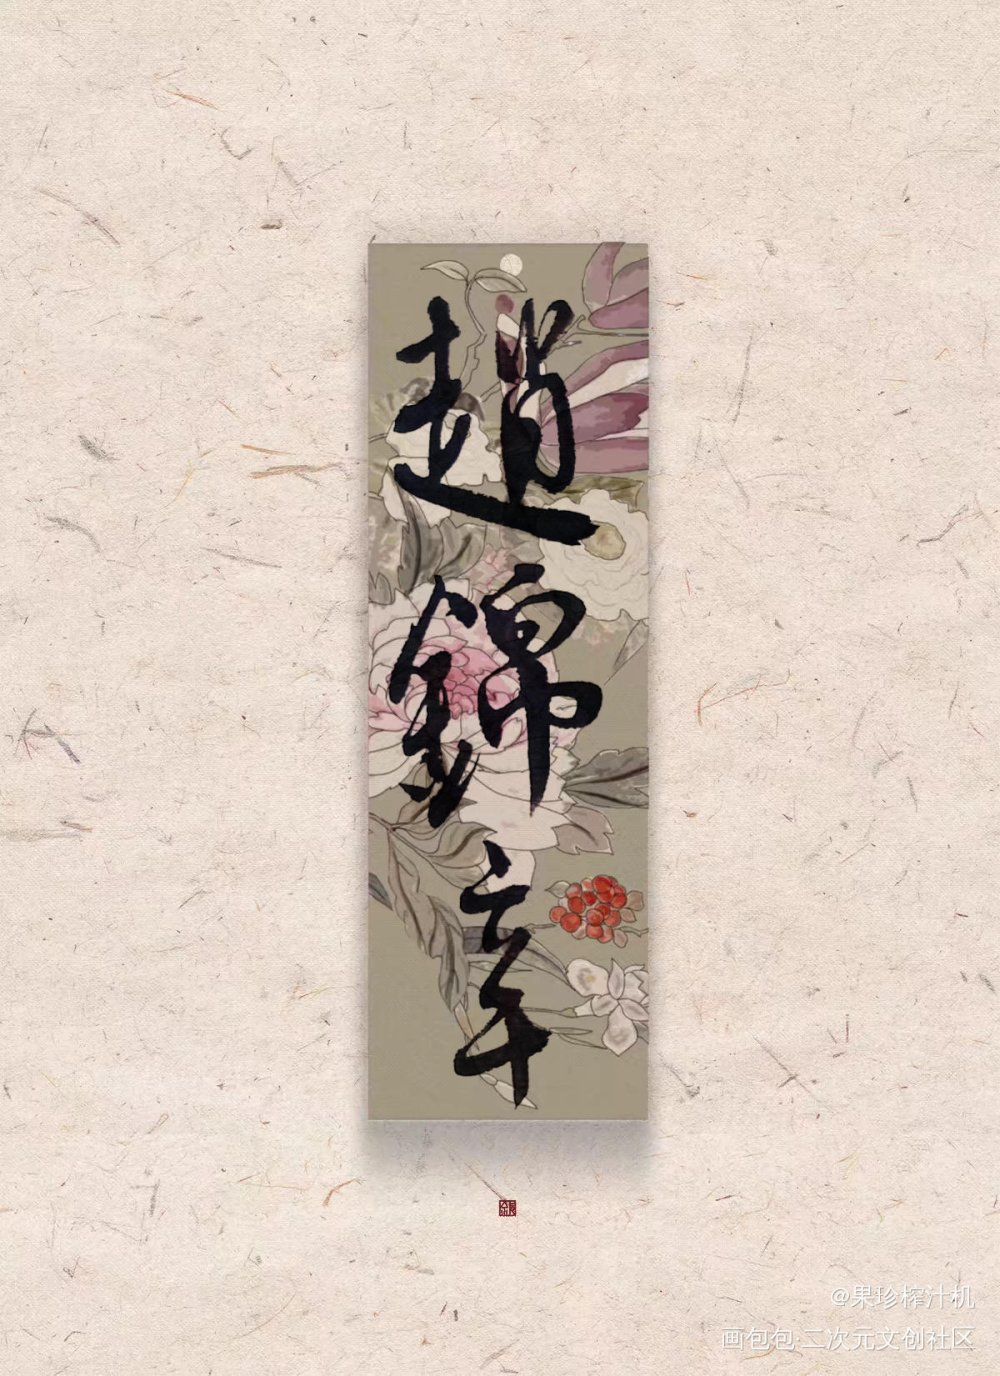 趙錦辛
@果珍榨汁机
画包包·二次元文创社区